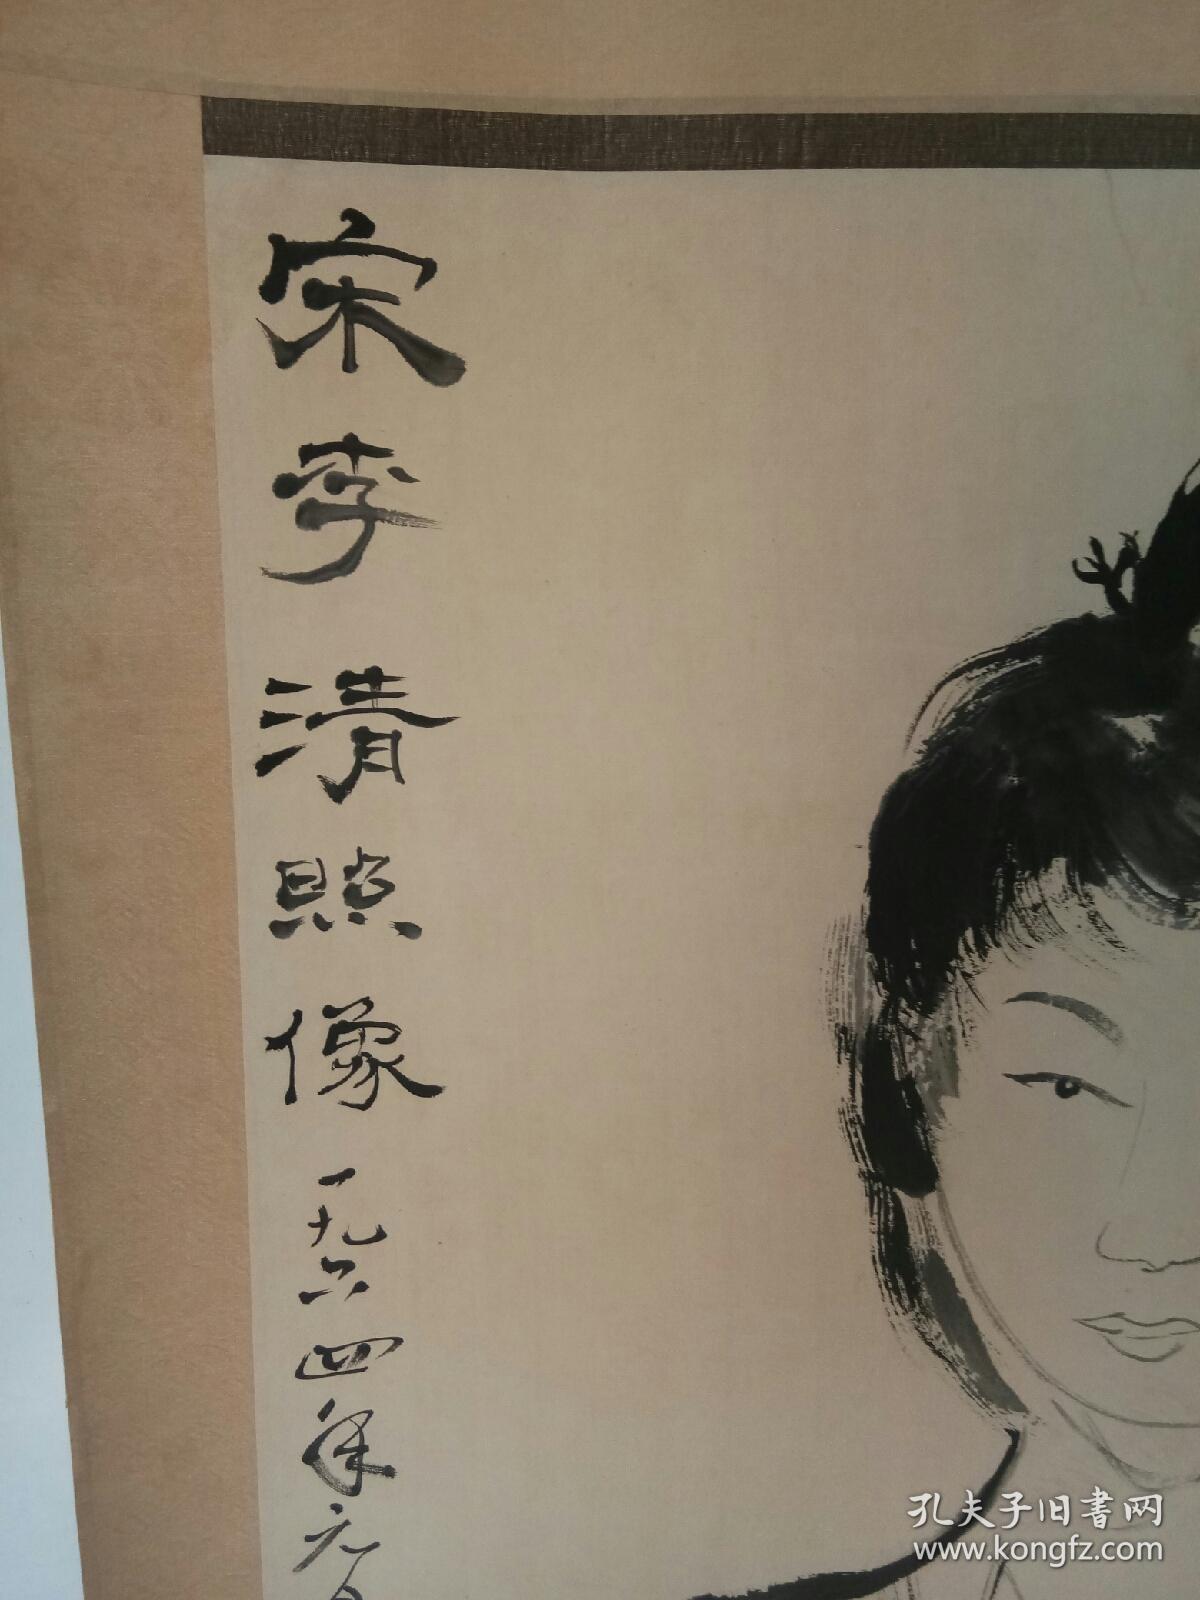 宋李清照像一九六四年元
孔夫子旧書网
www.kongfz.com